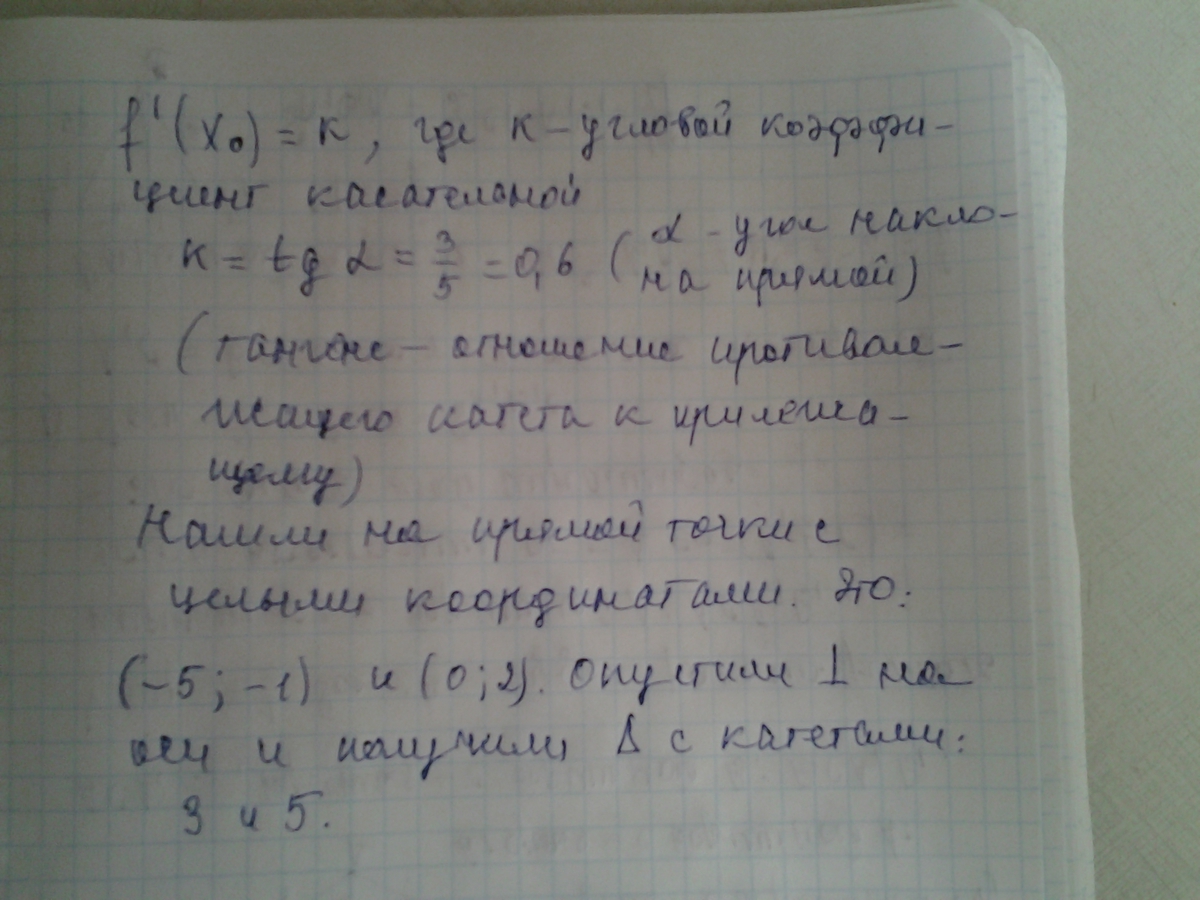 f'(x₀) = к, где к – угловой коэффи-
циент касательной
к = tg α = 3/5 = 0,6 (α - угол накло-
на прямой)
(тангенс – отношение противоле-
жащего катета к прилежа-
щему)
Нашли на прямой точки с
целыми координатами. Это:
(-5; -1) и (0; 2). Опустили ⊥ на
оси и получили Δ с катетами:
3 и 5.